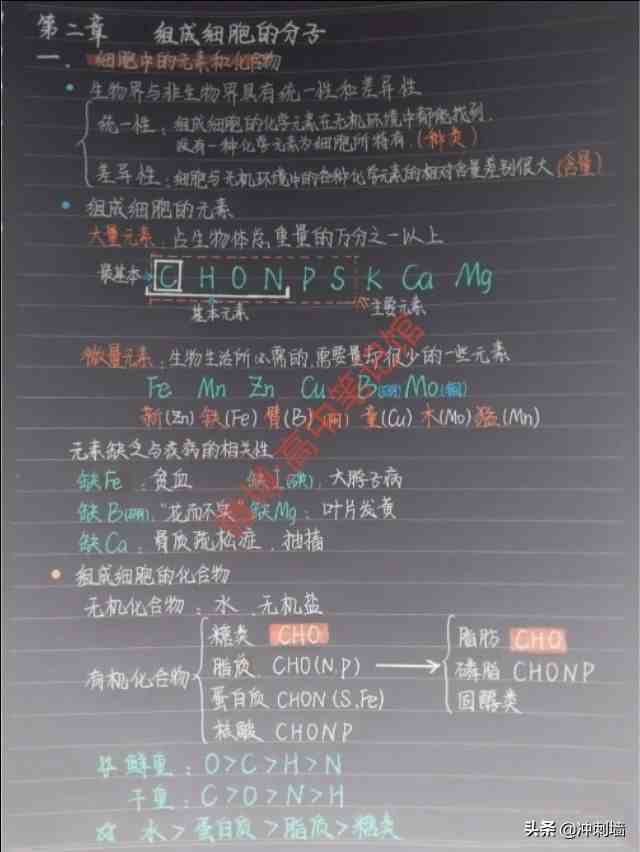 第二章 组成细胞的分子
一、细胞中的元素和化合物
• 生物界与非生物界具有统一性和差异性
统一性：组成细胞的化学元素在无机环境中都能找到,
没有一种化学元素为细胞所特有.(种类)
差异性：细胞与无机环境中的各种化学元素的相对含量差别很大(含量)
• 组成细胞的元素
大量元素：占生物体总重量的万分之一以上
最基本 C H O N P S K Ca Mg
基本元素 主要元素
微量元素：生物生活所必需的,需要量却很少的一些元素
Fe Mn Zn Cu B(硼) Mo(钼)
新(Zn) 铁(Fe) 臂(B) (阿) 童(Cu) 木(Mo) 猛(Mn)
元素缺乏与疾病的相关性
缺Fe：贫血 缺I(碘)：大脖子病
缺B(硼)："花而不实" 缺Mg：叶片发黄
缺Ca：骨质疏松症、抽搐
• 组成细胞的化合物
无机化合物：水、无机盐
有机化合物
糖类 CHO
脂质 CHO(N.P)
蛋白质 CHON(S.Fe)
核酸 CHONP
脂肪 CHO
磷脂 CHONP
固醇类
鲜重：O>C>H>N
干重：C>O>N>H
☆ 水>蛋白质>脂质>糖类
高中笔记馆
头条 @冲刺墙